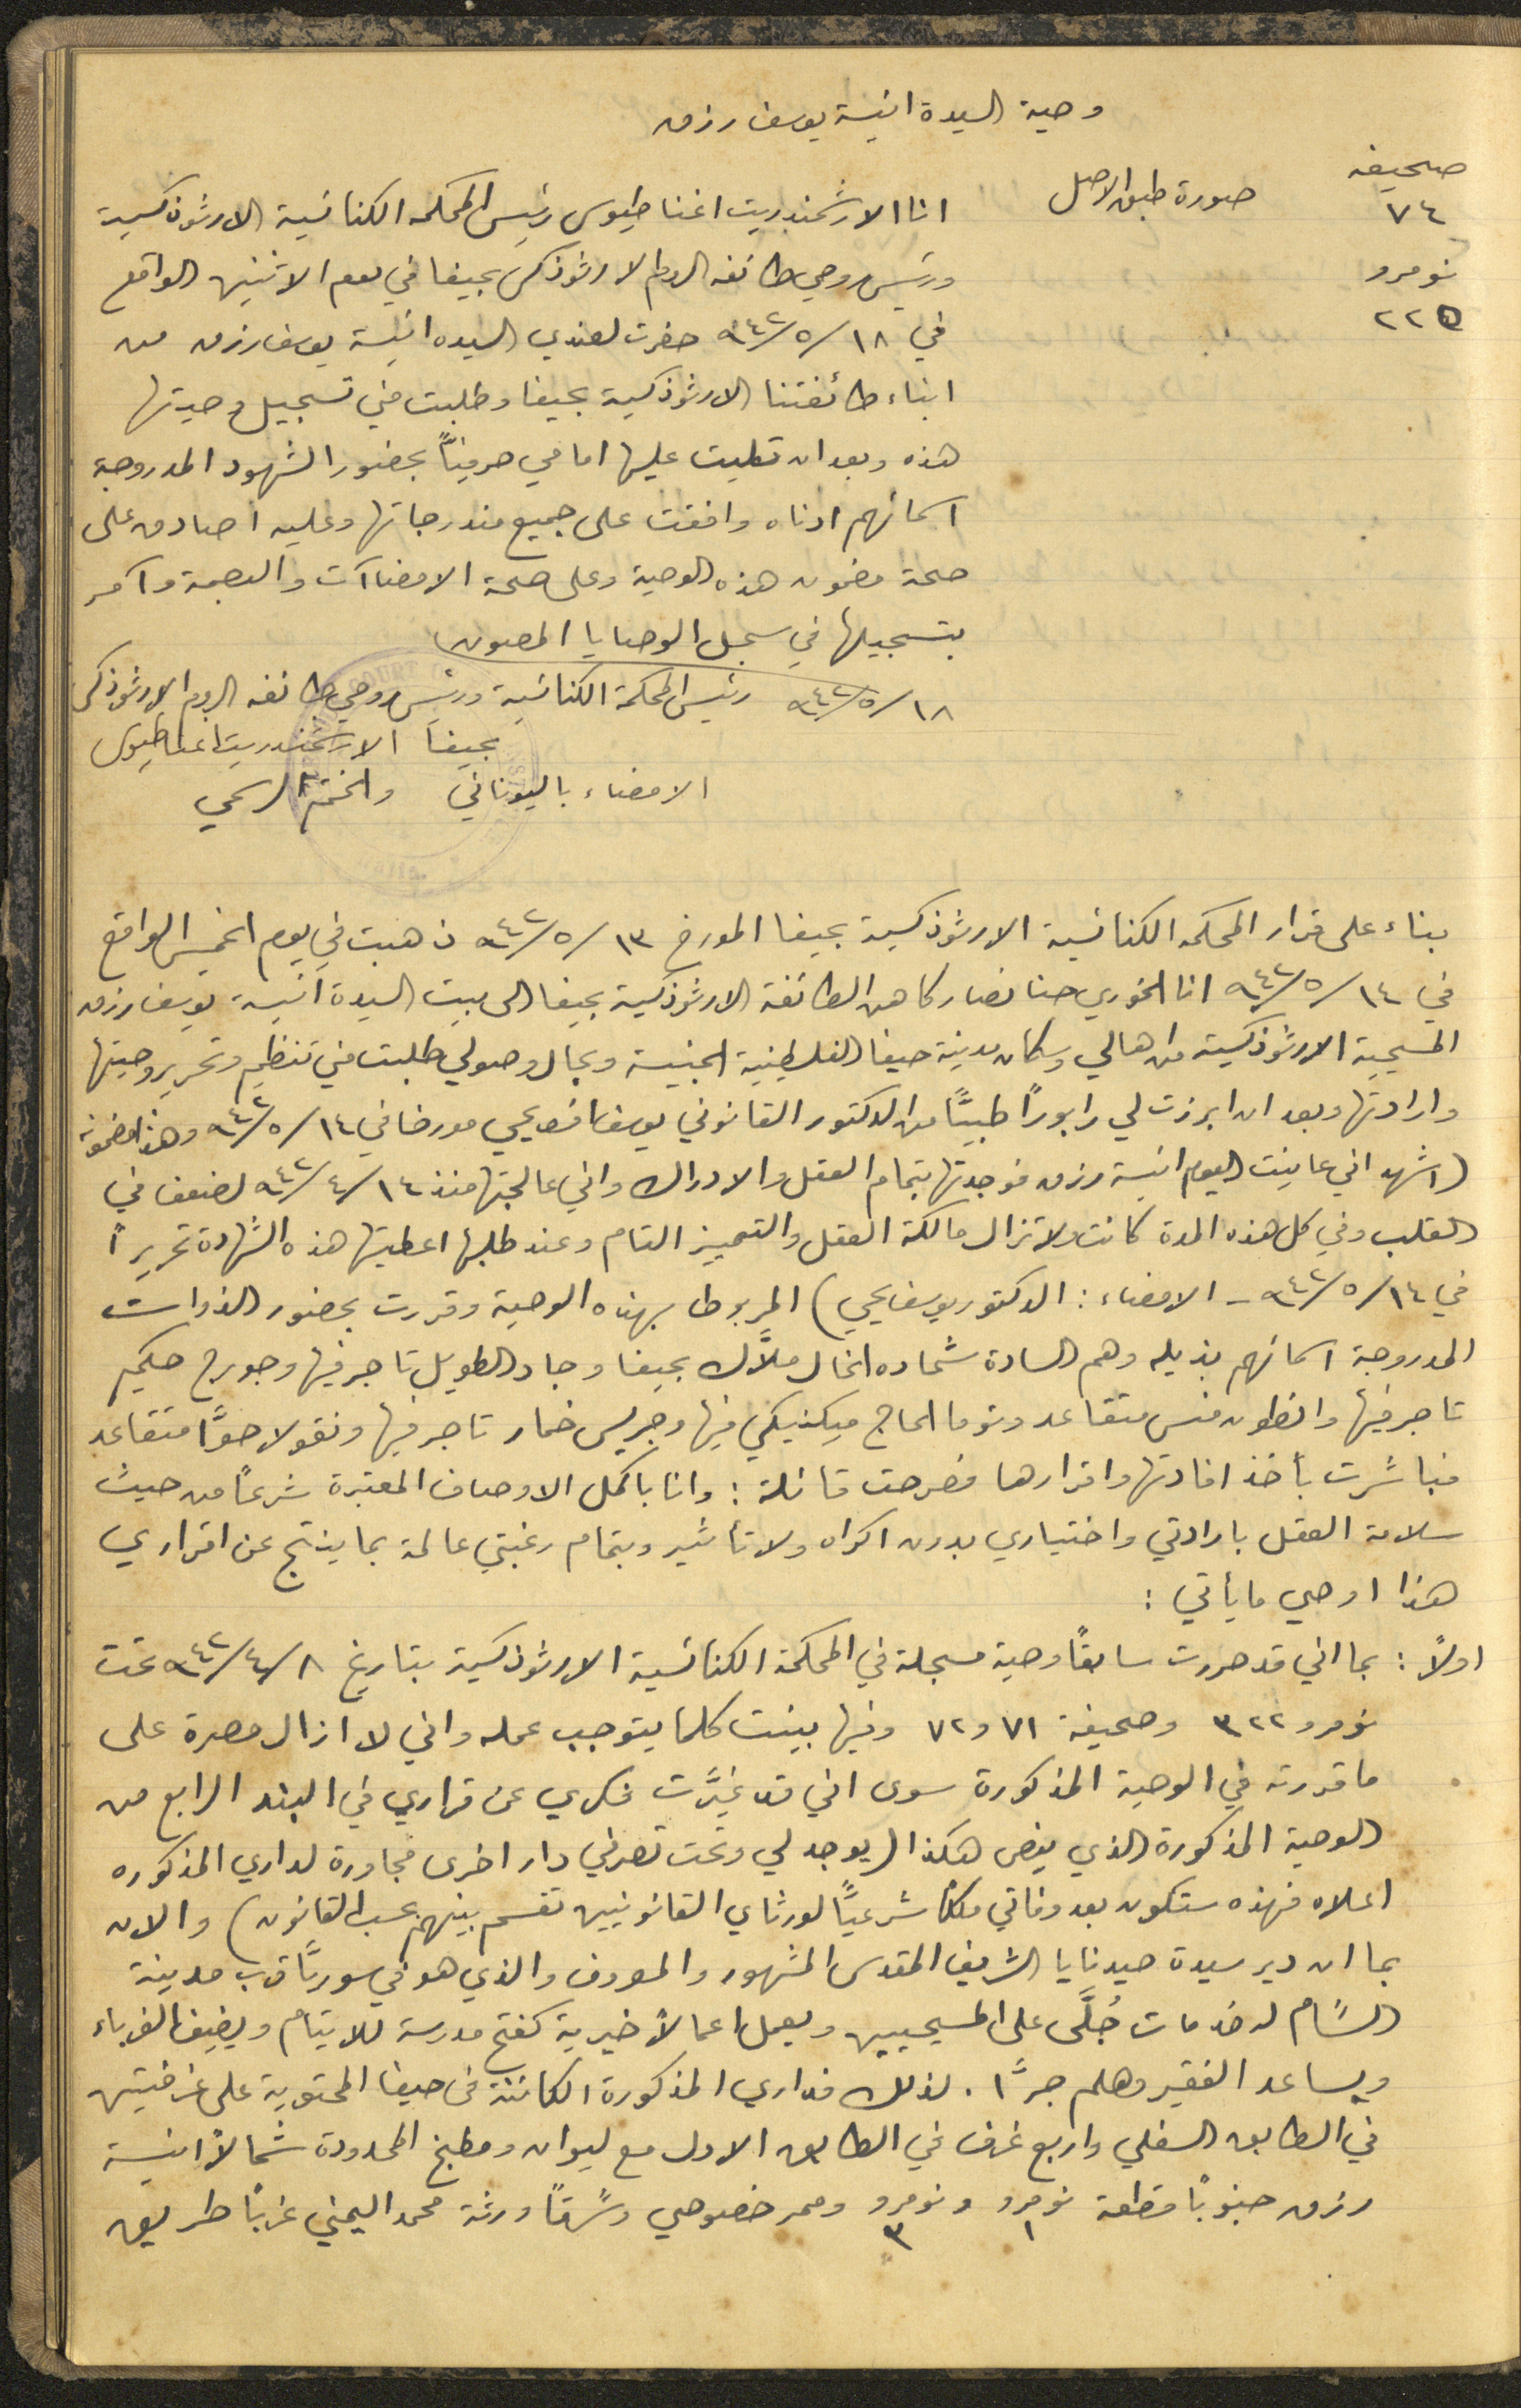 وصية السيدة انيسة يوسف رزق
صحيفة
٧٤
نومرو
٢٢٥
صورة طبق الاصل
انا الارشمندريت اغناطيوس رئيس المحكمه الكنائسية الارثوذكسية
ورئيس روحي طائفة الروم الارثوذكس بحيفا في يوم الاثنين الواقع
في ١٨/٥/٩٤٢ حضرت لعندي السيده انيسة يوسف رزق من
ابناء طائفتنا الارثوذكسية بحيفا وطلبت مني تسجيل وصيتها
هذه وبعد ان تليت عليها امامي حرفياً بحضور الشهود المدروجة
اسمائهم ادناه وافقت على جميع مندرجاتها وعليه اصادق على
صحة مضمون هذه الوصية وعلى صحة الامضاآت والبصمة وآمر
بتسجيلها في سجل الوصايا المصون
١٨/٥/٩٤٢ رئيس المحكمة الكنائسية ورئيس روحي طائفة الروم الارثوذكس
بحيفا الارشمندريت اغناطيوس
الامضاء باليوناني والختم الرسمي
بناء على قرار المحكمه الكنائسية الارثوذكسية بحيفا المورخ ١٣/٥/٩٤٢ ذهبت في يوم الخميس الواقع
في ١٤/٥/٩٤٢ انا الخوري حنا نصار كاهن الطائفة الارثوذكسية بحيفا الى بيت السيدة انيسة يوسف رزق
المسيحية الارثوذكسية من اهالي وسكان مدينة حيفا الفلسطينية الجنسية وبحال وصولي طلبت مني تنظيم وتحرير وصيتها
وارادتها وبعد ان ابرزت لي رابوراً طبيًّا من الدكتور القانوني يوسف افـ يحيي مورخا في ١٤/٥/٩٤٢ وهذا مضمونه
(اشهد اني عاينت اليوم انيسة رزق فوجدتها بتمام العقل والادراك واني عالجتها منذ ١٤/٤/٩٤٢ لضعف في
القلب وفي كل هذه المدة كانت ولا تزال مالكة العقل والتمييز التام وعند طلبها اعطيتها هذه الشهادة تحريراً
في ١٤/٥/٩٤٢ - الامضاء: الدكتور يوسف يحيي) المربوطا بهذه الوصية وقررت بحضور الذوات
المدروجة اسمائهم بذيله وهم السادة شحاده الخال ملاّك بحيفا وجاد الطويل تاجر فيها وجورج حكيم
تاجر فيها وانطون منسى متقاعد وتوما الحاج ميكنيكي فيها وجريس خمار تاجر فيها ونقولا حوّا متقاعد
فباشرت بأخذ افادتها واقرارها فصرحت قائلة: وانا بأكمل الاوصاف المعتبرة شرعاً من حيث
سلامة العقل بارادتي واختياري بدون اكراه ولا تأثير وبتمام رغبتي عالمة بما ينتج عن اقراري
هذا اوصي ما يأتي:
اولاً: بما اني قد حررت سابقاً وصية مسجلة في المحكمة الكنائسية الارثوذكسية بتاريخ ٨/٤/٩٤٢ تحت
نومرو ٣٢٢ وصحيفة ٧١ و٧٢ وفيها بينت كلما يتوجب عمله واني لا ازال مصرة على
ما قررته في الوصية المذكورة سوى اني قد غيَّرت فكري عن قراري في البند الرابع من
الوصية المذكورة الذي ينص هكذا (يوجد لي وتحت تصرفي دار اخرى مجاورة لداري المذكوره
اعلاه فهذه ستكون بعد وفاتي ملكاً شرعيًّا لورثاي القانونيين تقسم بينهم بحسب القانون) والان
بما ان دير سيدة صيدنايا الشريف المقدس المشهور والمعروف والذي هو في سوريَّا قرب مدينة
الشام له خدمات جُلَّى على المسيحيين ويعمل اعمالاً خيرية كفتح مدرسة للايتام ويضيف الغرباء
ويساعد الفقير وهلم جرًّا. لذلك فداري المذكورة الكائنة في حيفا المحتوية على غرفتين
في الطابق السفلي واربع غرف في الطابق الاول مع ليوان ومطبخ المحدودة شمالاً انيسة
رزق جنوباً قطعة نومرو ١ ونومرو ٣ وممر خصوصي وشرقاً ورثة محمد اليمني غرباً طريق